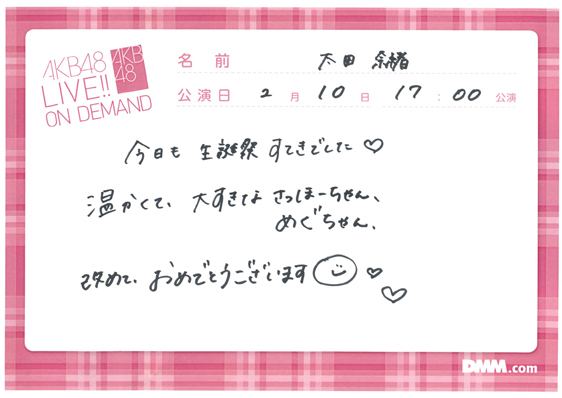 AKB48
LIVE!!
ON DEMAND
AKB
48
名前 太田 奈緒
公演日 2月10日 17:00公演
今日も 生誕祭 すてきでした♡
温かくて、大すきな さっほーちゃん、
めぐちゃん、
改めて、おめでとうございます☺♡
♡
DMM.com